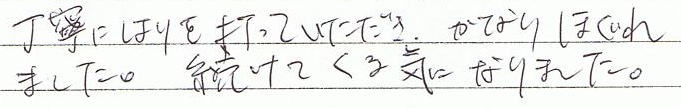 丁寧にはりを打っていただき、かなりほぐれ
ました。続けてくる気になりました。